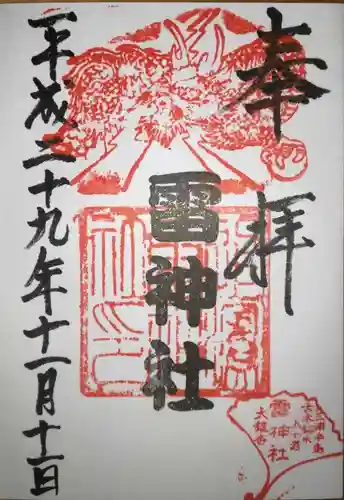 奉拝
雷神社
平成二十九年十一月十一日
雷神社